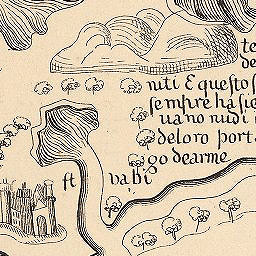 te
de
niti E questo s
sempre hasie
uano nudi
deloro port
go dearme
ft
vabi